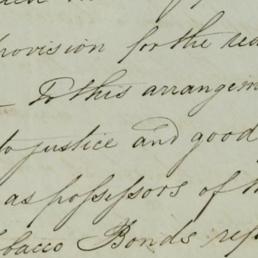 provision for the
To this arrangem
to justice and good
as possessors of t
obacco Bonds rep